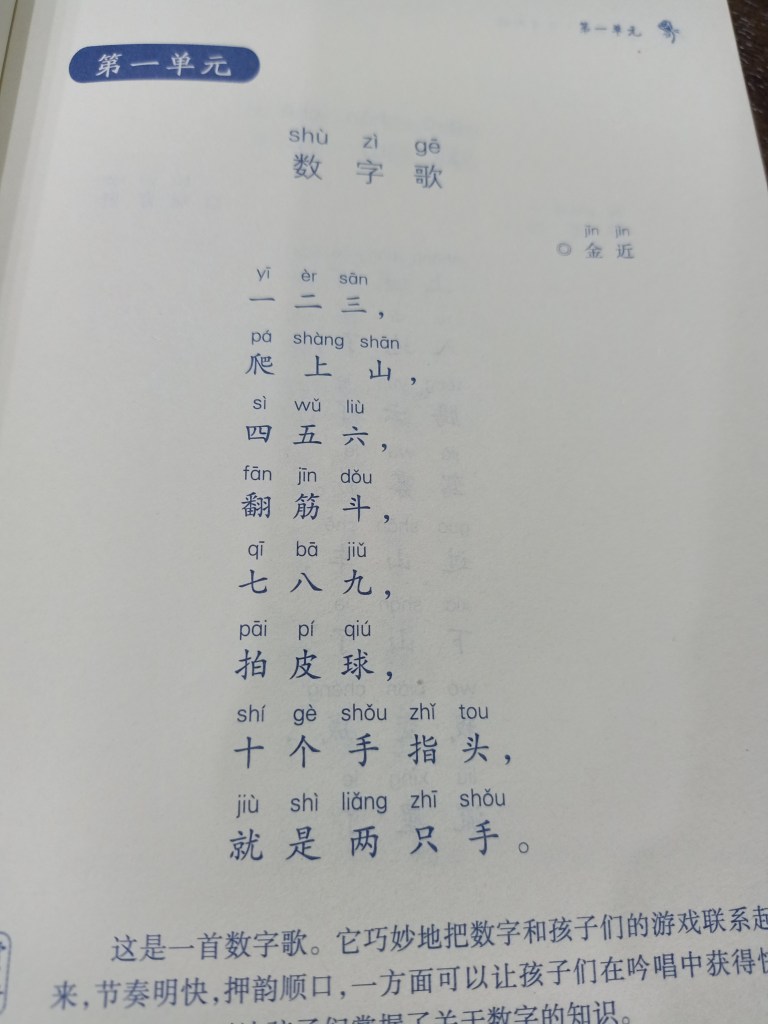 第一单元
第一单元
shù zì gē
数字歌
jīn jìn
◎金近
yī èr sān
一二三，
pá shàng shān
爬上山，
sì wǔ liù
四五六，
fān jīn dǒu
翻筋斗，
qī bā jiǔ
七八九，
pāi pí qiú
拍皮球，
shí gè shǒu zhǐ tou
十个手指头，
jiù shì liǎng zhī shǒu
就是两只手。
这是一首数字歌。它巧妙地把数字和孩子们的游戏联系起
来，节奏明快，押韵顺口，一方面可以让孩子们在吟唱中获得
孩子们掌握了关于数字的知识。